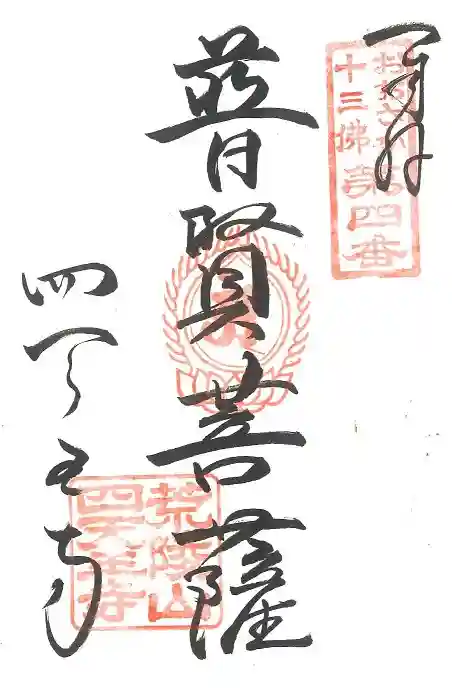 奉拝
おおさか
十三佛第四番
普賢菩薩
四天王寺
荒陵山
四天王寺